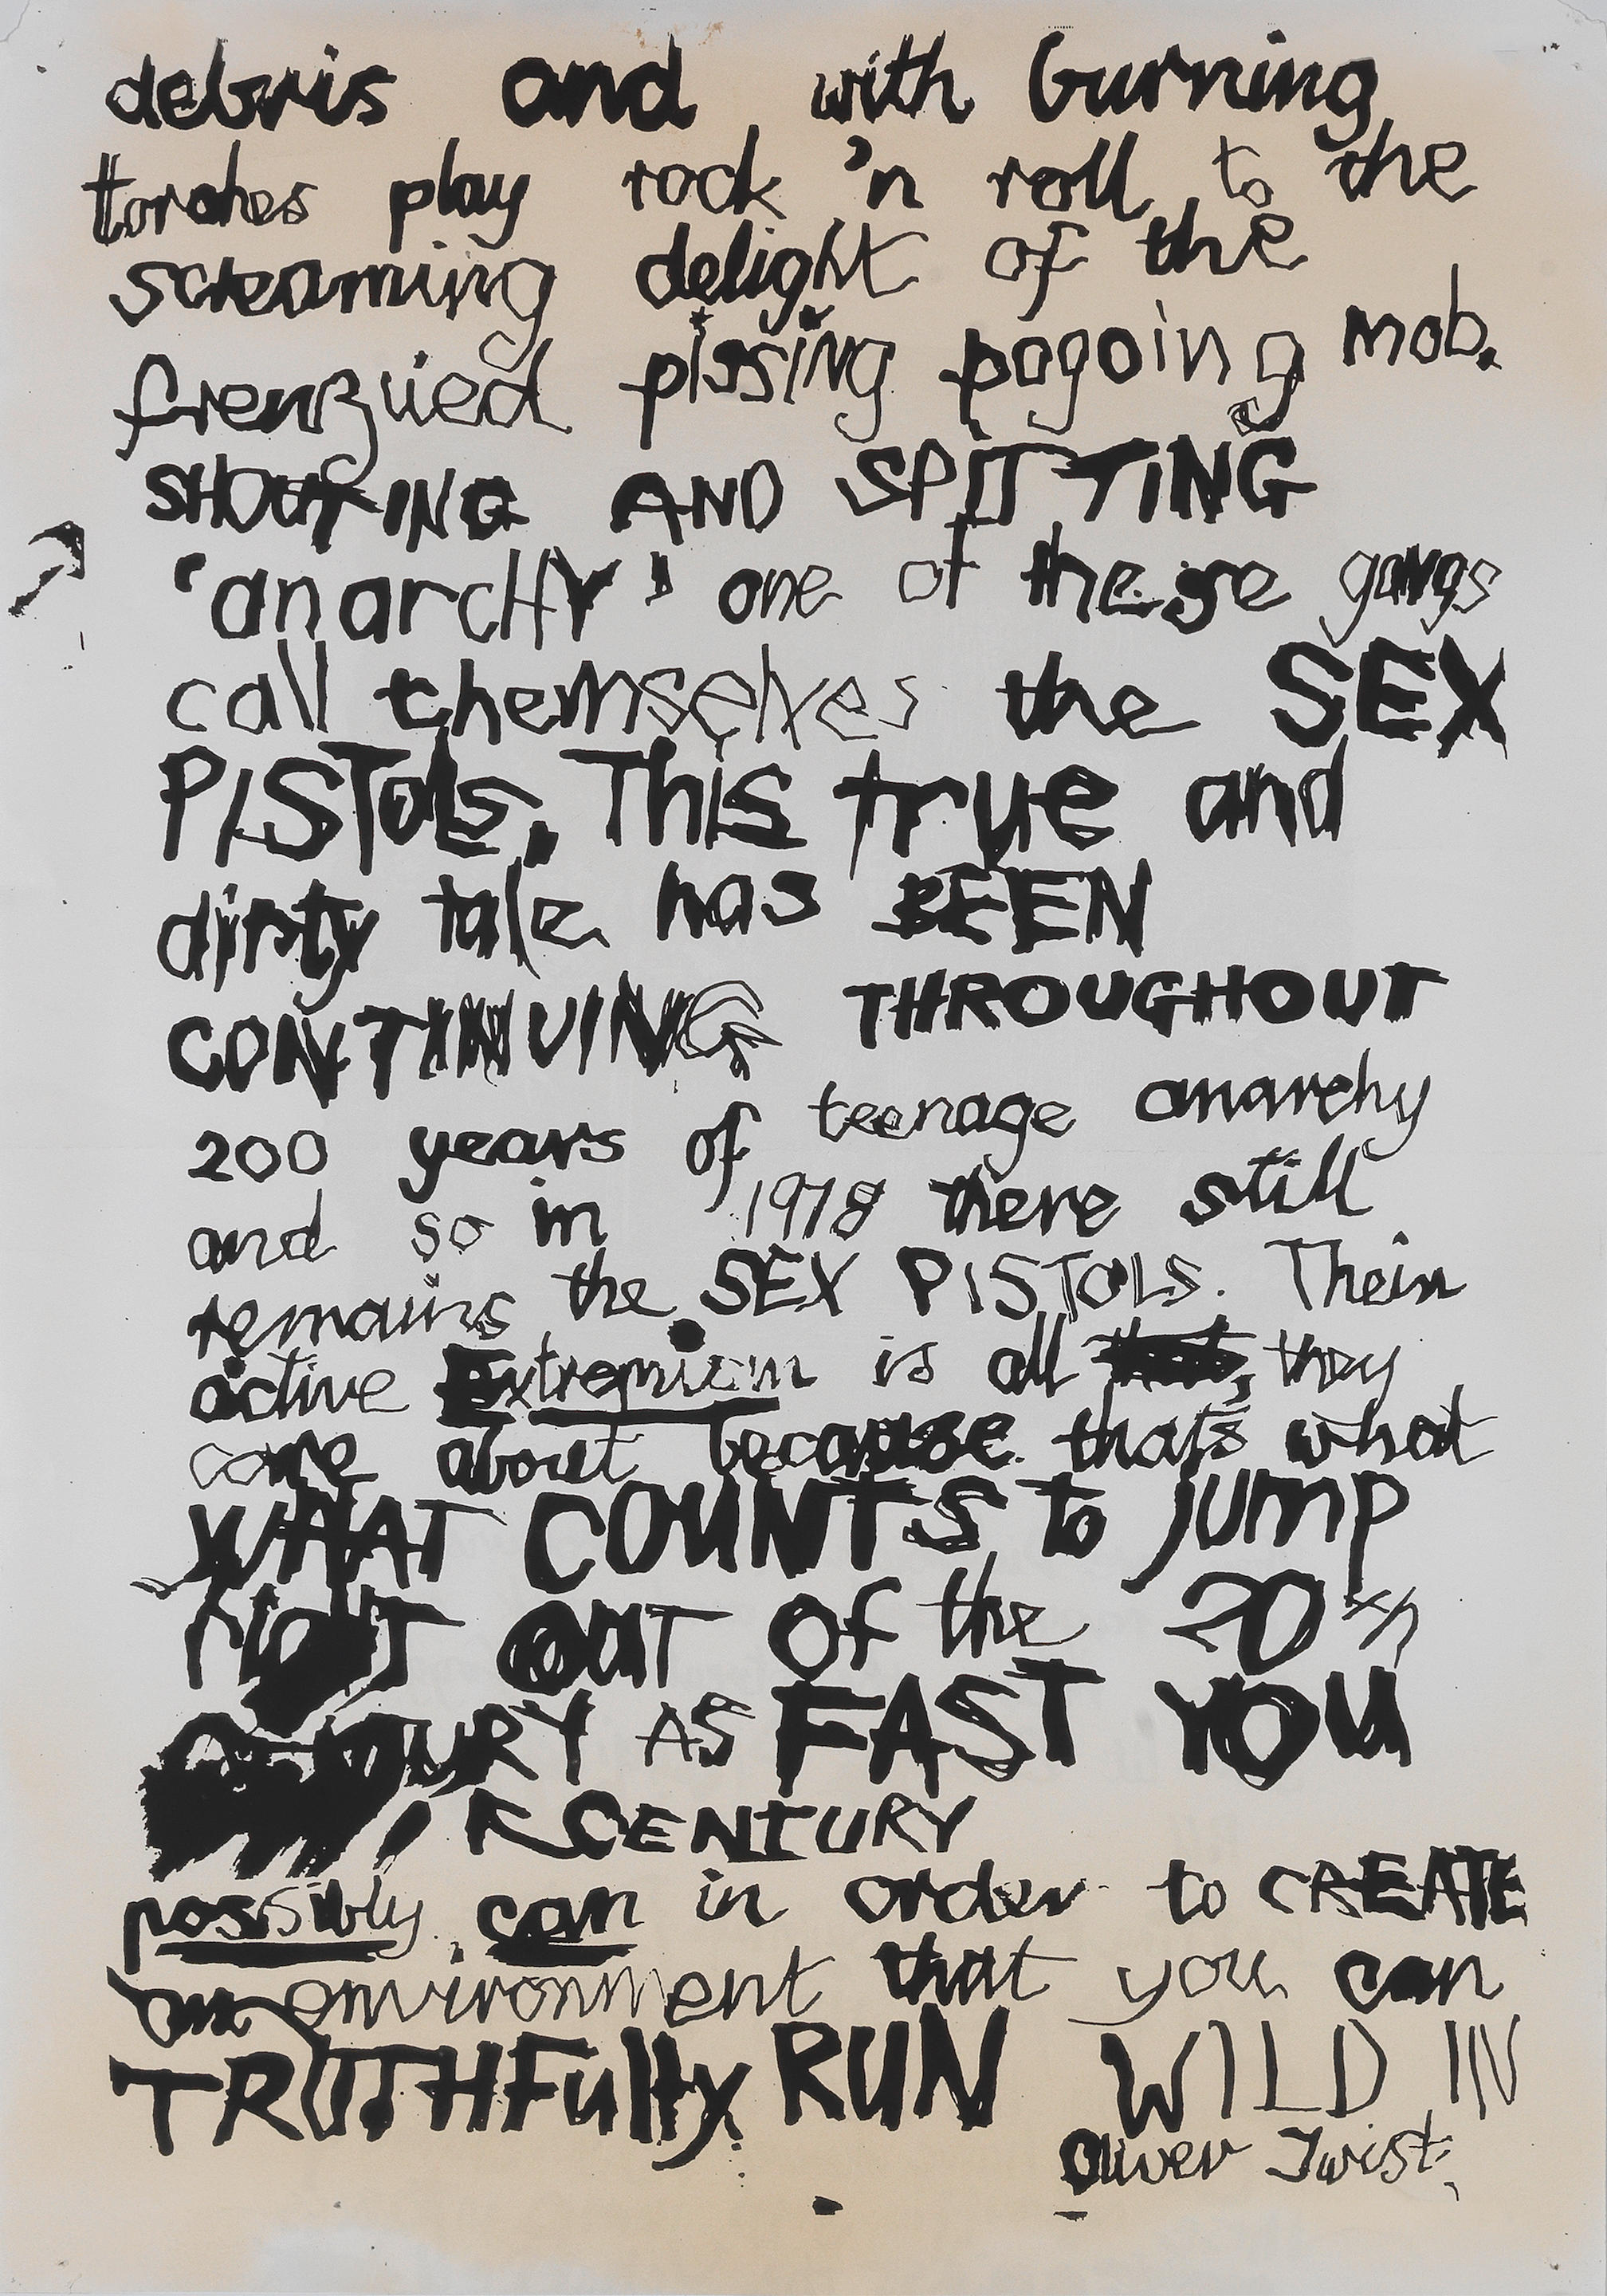 debris and with burning
torches play rock 'n roll to the
screaming delight of the
frenzied pissing pogoing mob.
SHOUTING AND SPITTING
'anarcHY' one of these gangs
call themselves the SEX
PISTOLs. This true and
dirty tale has BEEN
CONTINUING THROUGHOUT
200 years of teenage anarchy
and so in 1978 there still
remains the SEX PISTOLS. Their
active Extremism is all they
care about because that's what
WHAT COUNTS to jump
right OUT Of the 20th
CENTURY AS FAST YOU
CENTURY
possibly can in order to CREATE
an environment that you can
TRUTHFully RUN WILD IN
Oliver Twist.